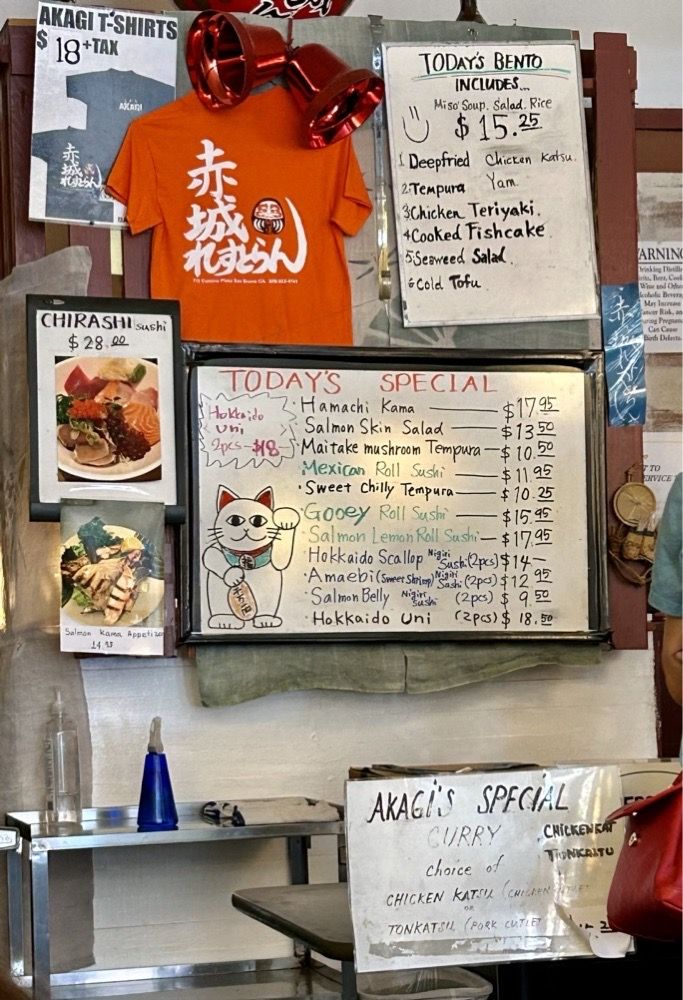 AKAGI T-SHIRTS
$18+TAX
AKAGI
赤城
れすとらん
赤城
れすとらん
TODAY'S BENTO
INCLUDES...
Miso Soup. Salad. Rice
$15.25
1. Deepfried Chicken Katsu.
2. Tempura Yam.
3 Chicken Teriyaki.
4 Cooked Fishcake
5. Seaweed Salad.
6 Cold Tofu.
WARNING
Drinking Distilled
Wine and Other
Alcoholic Beverages
May Increase
Cancer Risk, and
During Pregnancy
Can Cause
Birth Defects.
CHIRASHI sushi
$28.00
Salmon Kama Appetizer
14.95
TODAY'S SPECIAL
Hokkaido
Uni
2pcs-$18
・Hamachi Kama — $17.95
・Salmon Skin Salad — $13.50
・Maitake mushroom Tempura — $10.50
・Mexican Roll Sushi — $11.95
・Sweet Chilly Tempura — $10.25
・Gooey Roll Sushi — $15.95
・Salmon Lemon Roll Sushi — $17.95
・Hokkaido Scallop Nigiri Sushi (2pcs) $14—
・Amaebi (Sweet Shrimp) Nigiri Sushi (2pcs) $12.95
・Salmon Belly Nigiri Sushi (2pcs) $9.50
・Hokkaido Uni (2pcs) $18.50
AKAGI'S SPECIAL
CURRY
choice of
CHICKEN KATSU
or
TONKATSU (PORK CUTLET